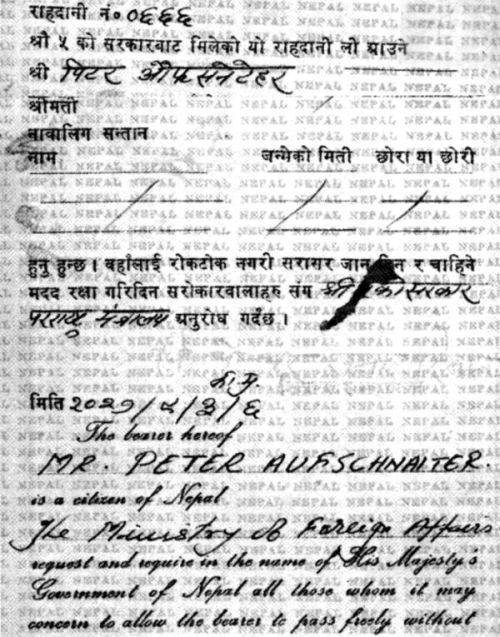 राहदानी नं॰ ०६६६
श्री ५ को सरकारबाट मिलेको यो राहदानी ली आउने
श्री पिटर औफ्सनेटेहर
श्रीमती
नाबालिग सन्तान
नाम जन्मेको मिती छोरा या छोरी
हुनु हुन्छ । वहाँलाई रोकटोक नगरी सरासर जान दिन र चाहिने
मदद रक्षा गरिदिन सरोकारवालाहरु संग श्री ५ को सरकार
परराष्ट्र मंत्रालय अनुरोध गर्दछ ।
मिति २०२१/
The bearer hereof
MR. PETER AUFSCHNAITER.
is a citizen of Nepal
The Ministry of Foreign Affairs
request and require in the name of His Majesty's
Government of Nepal all those whom it may
concern to allow the bearer to pass freely without